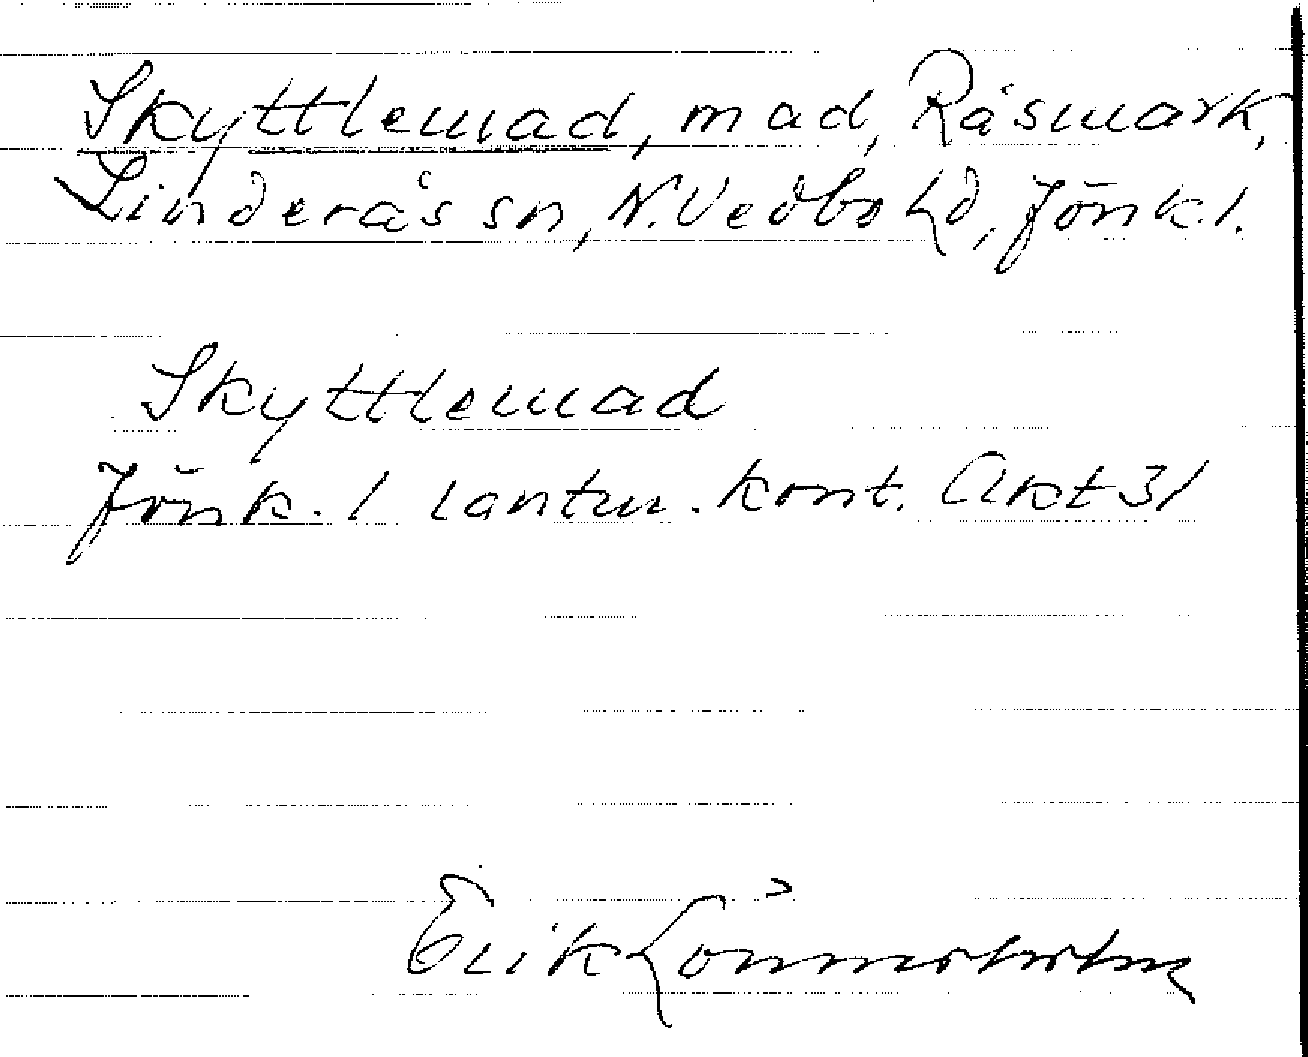 Skyttlemad, mad, Råsmark,
Linderås sn, N. Vedbo hd, Jönk. l.
Skyttlemad
Jönk. l lantm. kont. Akt 31
Erik